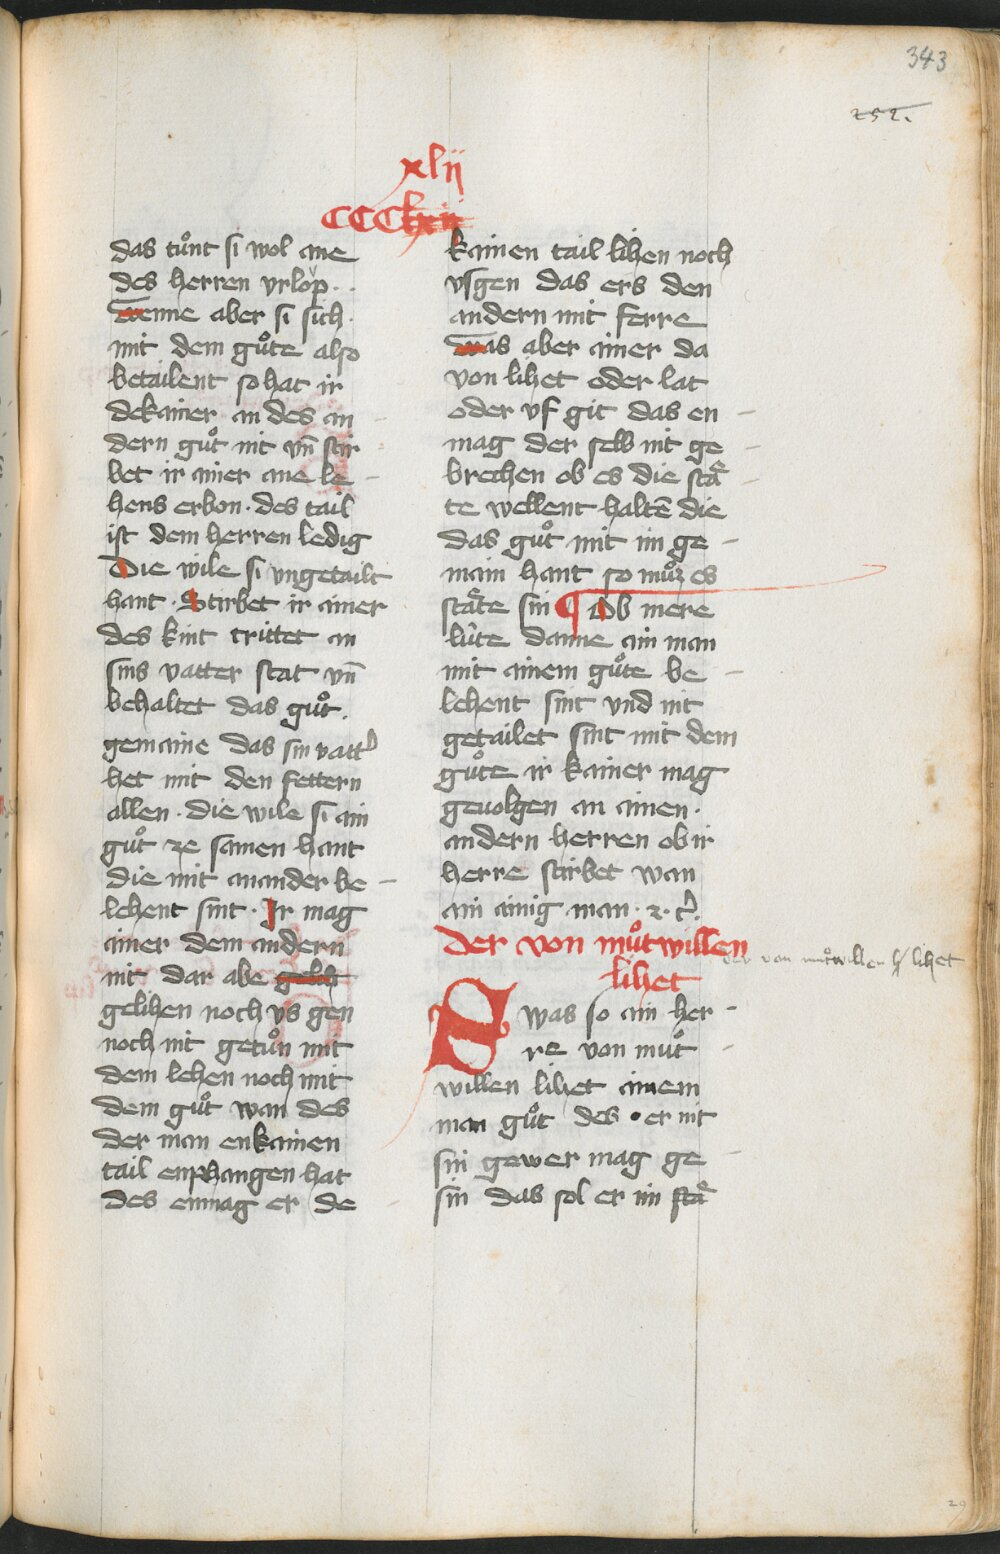 343
252.
xlij
CCCCl
das tuͦnt si wol ane
des herren vrlop.
Wenne aber si sich
mit dem guͦte also
betailent so hat ir
dekainer an des an
dern guͦt nit vn̄ stir
bet ir ainer ane le
hens erbon. des tail
ist dem herren ledig
Die wile si vngetailt
hant. Stirbet ir ainer
des kint trittet an
sins vatter stat vn̄
behaltet das guͦt.
gemaine das sin vatt᾽
het mit den fettern
allen. die wile si ain
guͦt ze samen hant
die mit ananderbe
lehent sint. Ir mag
ainer dem andern
nit dar abe
gelihen noch vs gen
noch nit getuͦn mit
dem lehen noch mit
dem guͦt wan des
der man enkainen
tail enphangen hat
des enmag er de
kainen tail lihen noch
vsgen das ers den
andern mit ferre
Was aber ainer da
von lihet oder lat
oder vf git das en
mag der selb nit ge
brechen ob es die staͤ
te wellent haltē die
das guͦt mit im ge
main hant so muͦz es
staͤte sin ¶ Ob mere
luͤte danne ain man
mit ainem guͦte be
lehent sint vnd nit
getailet sint mit dem
guͦte ir kainer mag
geuolgen an ainen.
andern herren ob ir
herre stirbet wan
ain ainig man. z. c᾽.
Der von muͦtwillen
lihet
der von muͦtwillen lihet
Swas so ain her
re von muͦt
willen lihet ainem
man guͦt des er nit
sin gewer mag ge
sin das sol er im staͤ
29